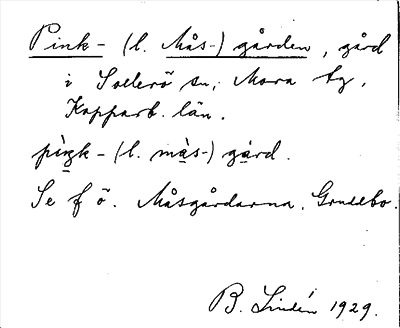 Pink- (l. Mås-) gården, gård
i Sollerö sn, Mora tg,
Kopparb. län.
pìŋk- (l. mås-) gård.
Se f ö. Måsgårdarna, Gruddbo.
B. Lindén 1929.